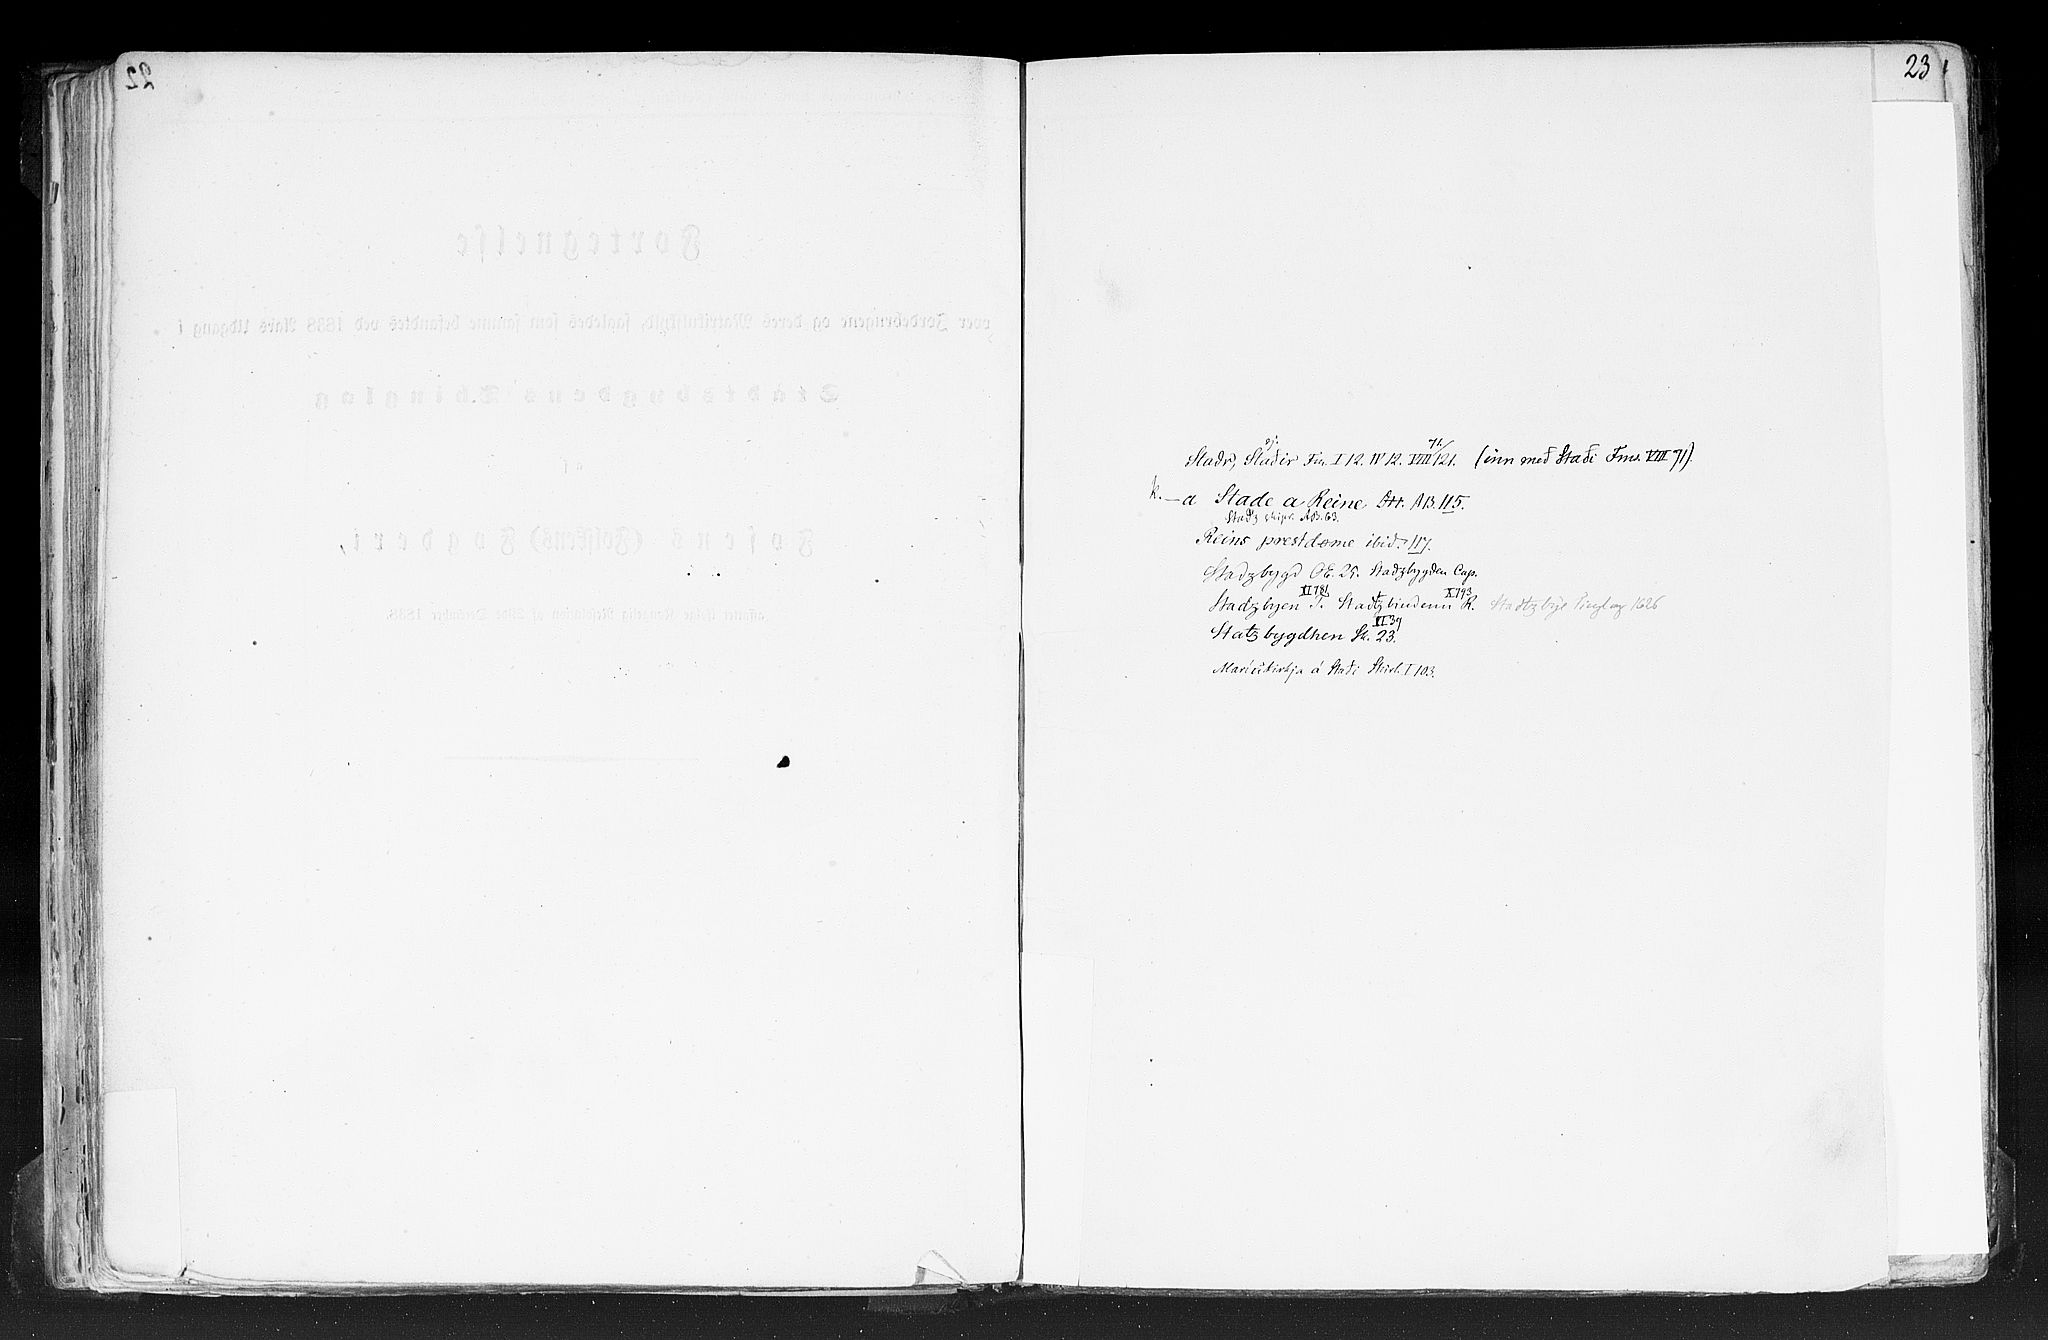 22
Fortegnelse
over Jordebrugene og deres Matrikulskyld, saaledes som samme befandtes ved 1838 Aars Udgang i
Stadsbygdens Thinglag
af
Fosens (Fossens) Fogderi,
23
Staðr, Staðir Fm. I 12. IV 12. VIII 71/121. (inn með Staði Fms. VIII 71).
k. — a Stade a Reine Ott. AB. 115.
Stadz skipr. AB. 63.
Reins prestdøme ibid. 117.
Stadzbygd OE. 25. Stadzbygden Cap.
Stadzbyen T. XI 181 Stadtzbindenn R. X 193 Stadtzbyg Tinglag 1626
Statzbygdhen St. 23. XI 39
Maríukirkja á Staði Sturl. I 103.